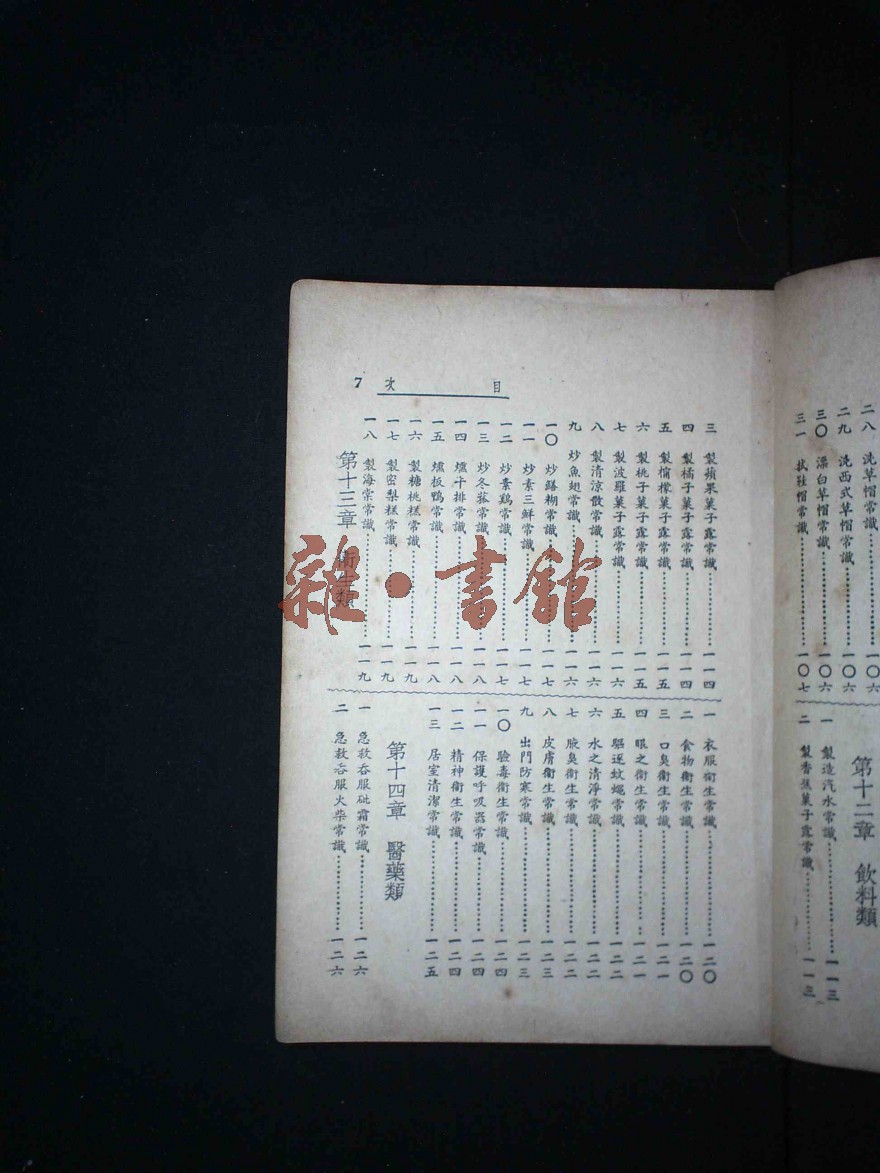 二八 洗草帽常識 一〇六
二九 洗西式草帽常識 一〇六
三〇 漂白草帽常識 一〇六
三一 拭毡帽常識 一〇七
第十二章 飲料類
一 製造汽水常識 一一三
二 製香蕉菓子露常識 一一三
目次 7
三 製蘋果菓子露常識 一一四
四 製橘子菓子露常識 一一四
五 製檸檬菓子露常識 一一五
六 製桃子菓子露常識 一一五
七 製波羅菓子露常識 一一六
八 製清涼散常識 一一六
九 炒魚翅常識 一一六
一〇 炒鱔糊常識 一一七
一一 炒素三鮮常識 一一七
一二 炒素鷄常識 一一七
一三 炒冬菰常識 一一八
一四 燻牛排常識 一一八
一五 燻板鴨常識 一一八
一六 製糖桃糕常識 一一九
一七 製密梨糕常識 一一九
一八 製海棠常識 一一九
第十三章 衛生類
一 衣服衛生常識 一二〇
二 食物衛生常識 一二〇
三 口臭衛生常識 一二一
四 眼之衛生常識 一二一
五 驅逐蚊蠅常識 一二二
六 水之清淨常識 一二二
七 腋臭衛生常識 一二二
八 皮膚衛生常識 一二三
九 出門防寒常識 一二三
一〇 驗毒衛生常識 一二四
一一 保護呼吸器常識 一二四
一二 精神衛生常識 一二四
一三 居室清潔常識 一二五
第十四章 醫藥類
一 急救吞服砒霜常識 一二六
二 急救吞服火柴常識 一二六
雜·書館